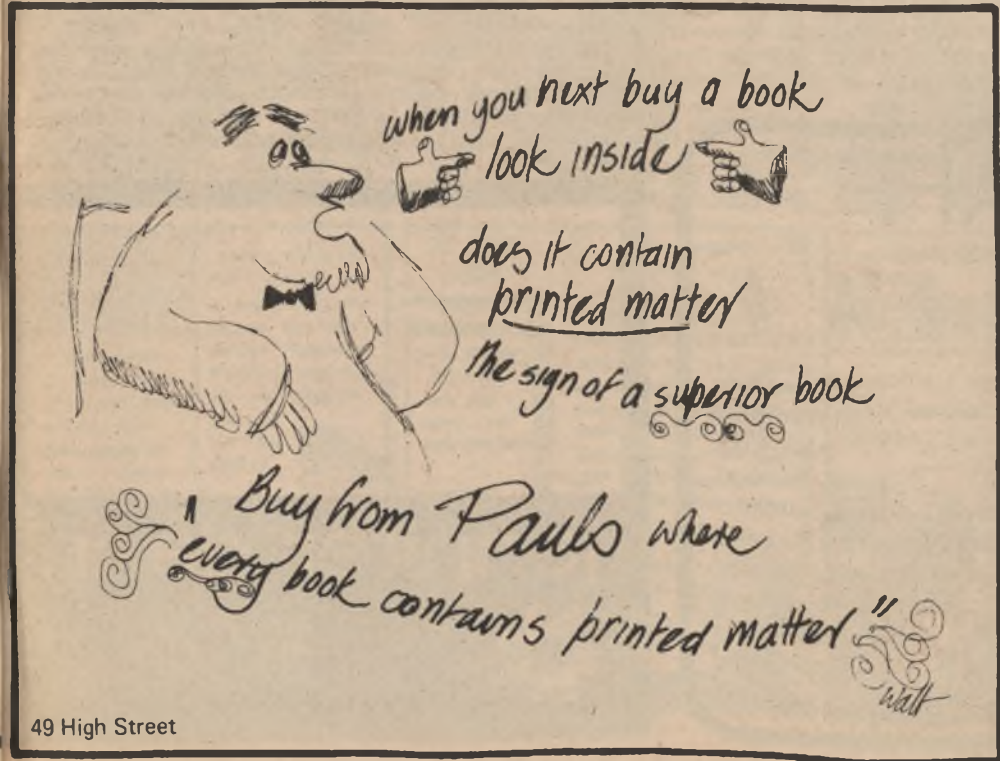 when you next buy a book
look inside
does it contain
printed matter
the sign of a superior book
" Buy from Pauls where
every book contains printed matter"
Walt
49 High Street